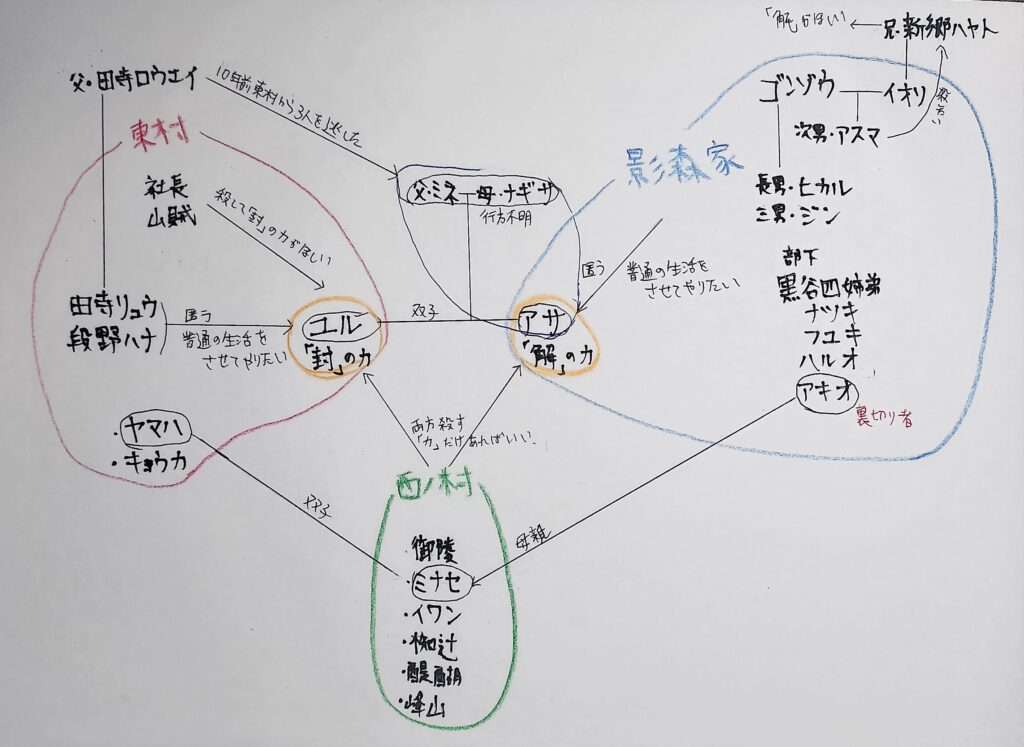 「解」がほしい
兄・新郷ハヤト
父・田寺ロウエイ
10年前東村から3人を逃した
ゴンゾウ
イオリ
殺害い
次男・アスマ
東村
影森家
社長
山賊
殺して「封」の力がほしい
父・ミネ
母・ナギサ
行方不明
長男・ヒカル
三男・ジン
匿う
普通の生活を
させてやりたい
部下
黒谷四姉弟
ナツキ
フユキ
ハルオ
アキオ
裏切り者
田寺リュウ
段野ハナ
匿う
普通の生活を
させてやりたい
ユル
「封」の力
双子
アサ
「解」の力
・ヤマハ
・キョウカ
両方殺す
「力」だけあればいい
西ノ村
双子
母親
御陵
・ミナセ
・イワン
・椥辻
・醍醐
・峰山